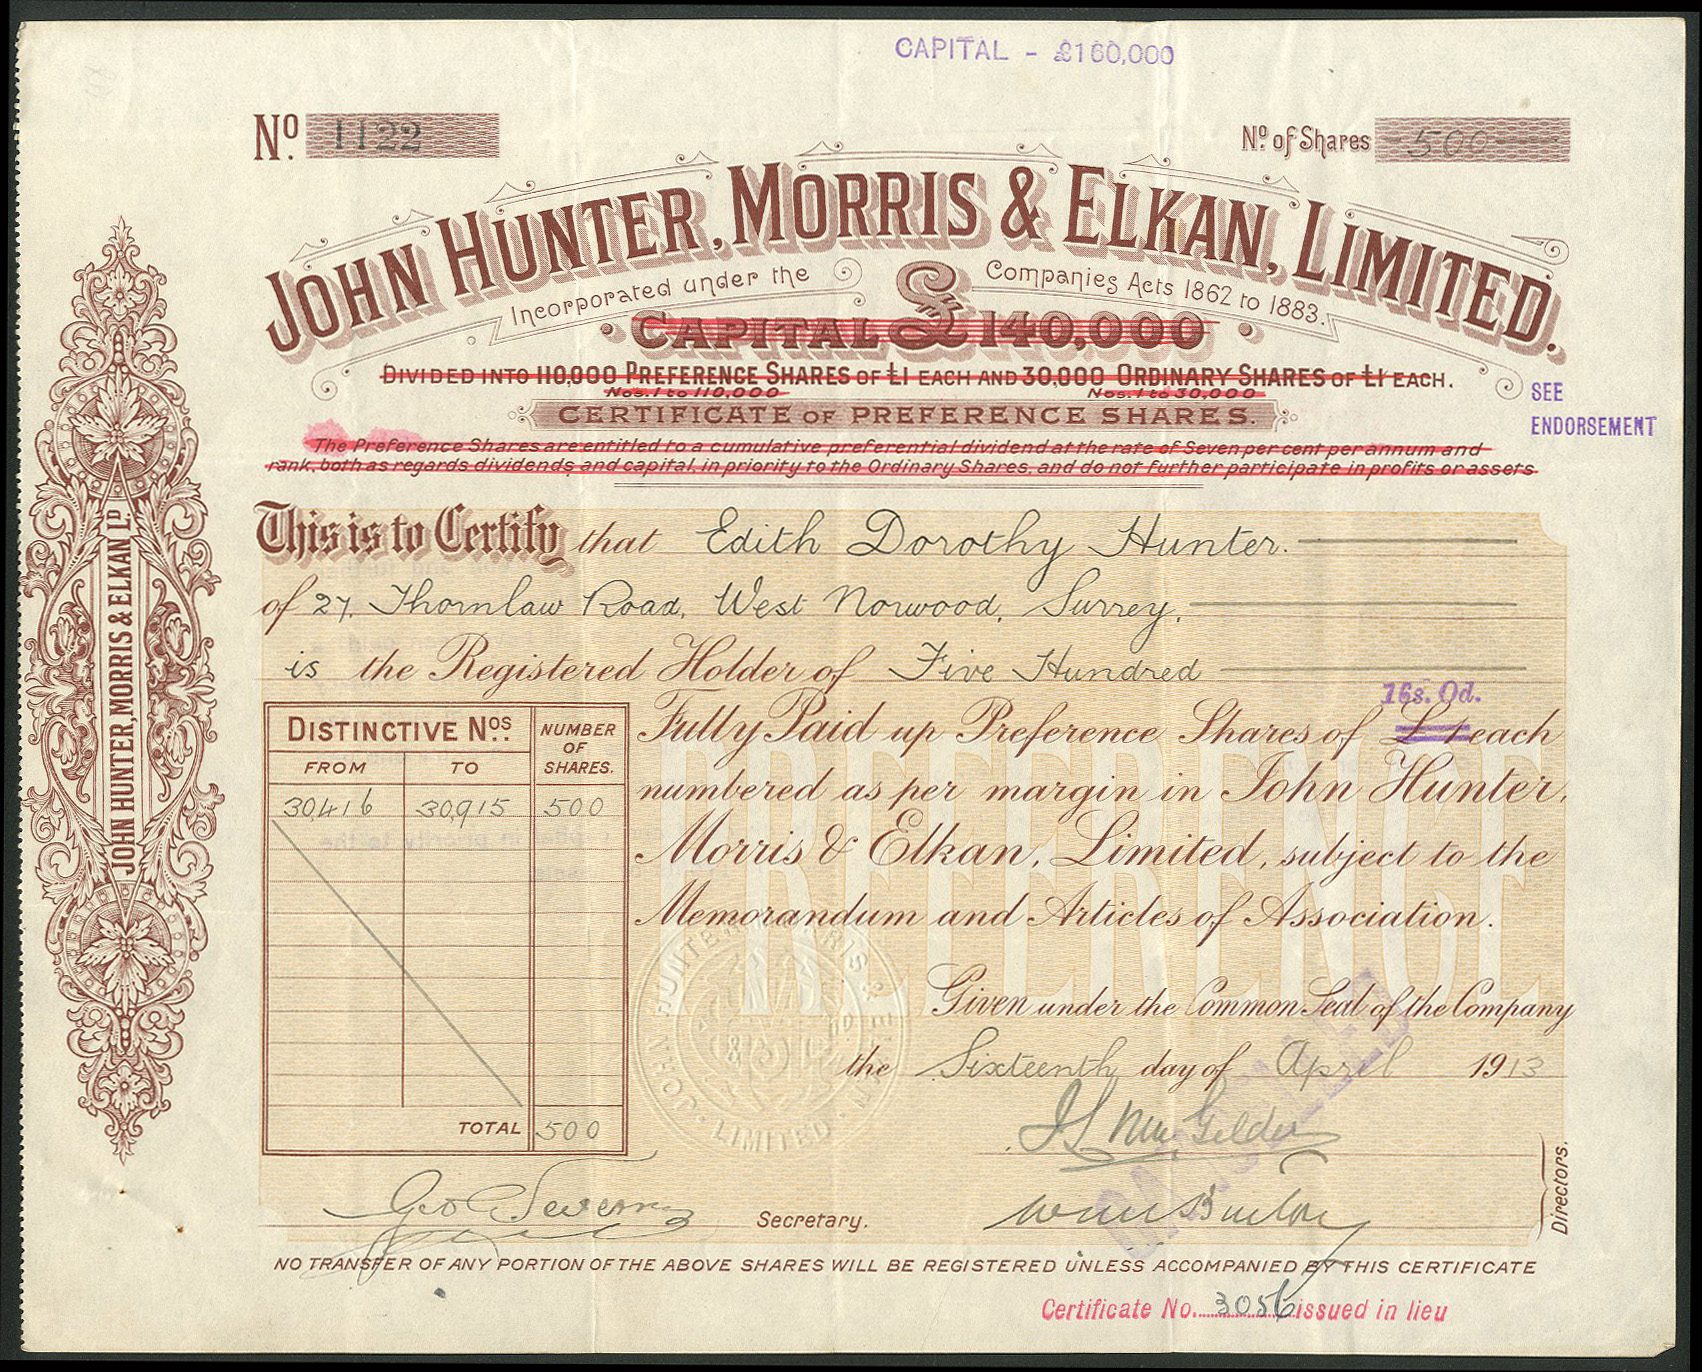 CAPITAL - £160,000
No. 1122
No. of Shares 500
JOHN HUNTER, MORRIS & ELKAN, LIMITED.
Incorporated under the Companies Acts 1862 to 1883.
CAPITAL £140,000
DIVIDED INTO 110,000 PREFERENCE SHARES OF £1 EACH AND 30,000 ORDINARY SHARES OF £1 EACH.
Nos. 1 to 110,000 Nos. 1 to 30,000
SEE
ENDORSEMENT
CERTIFICATE OF PREFERENCE SHARES.
The Preference Shares are entitled to a cumulative preferential dividend at the rate of Seven per cent per annum and
rank, both as regards dividends and capital, in priority to the Ordinary Shares, and do not further participate in profits or assets
This is to Certify that Edith Dorothy Hunter.
of 27, Thornlaw Road, West Norwood, Surrey,
is the Registered Holder of Five Hundred
16s. 0d.
Fully Paid up Preference Shares of £1 each
numbered as per margin in John Hunter,
Morris & Elkan, Limited, subject to the
Memorandum and Articles of Association.
PREFERENCE
DISTINCTIVE Nos. NUMBER OF SHARES.
FROM TO
30,416 30,915 500
TOTAL 500
JOHN HUNTER, MORRIS & ELKAN LD
JOHN HUNTER MORRIS & ELKAN LIMITED
Given under the Common Seal of the Company
the Sixteenth day of April 1913
CANCELLED
Directors.
Secretary.
NO TRANSFER OF ANY PORTION OF THE ABOVE SHARES WILL BE REGISTERED UNLESS ACCOMPANIED BY THIS CERTIFICATE
Certificate No. 3056 issued in lieu